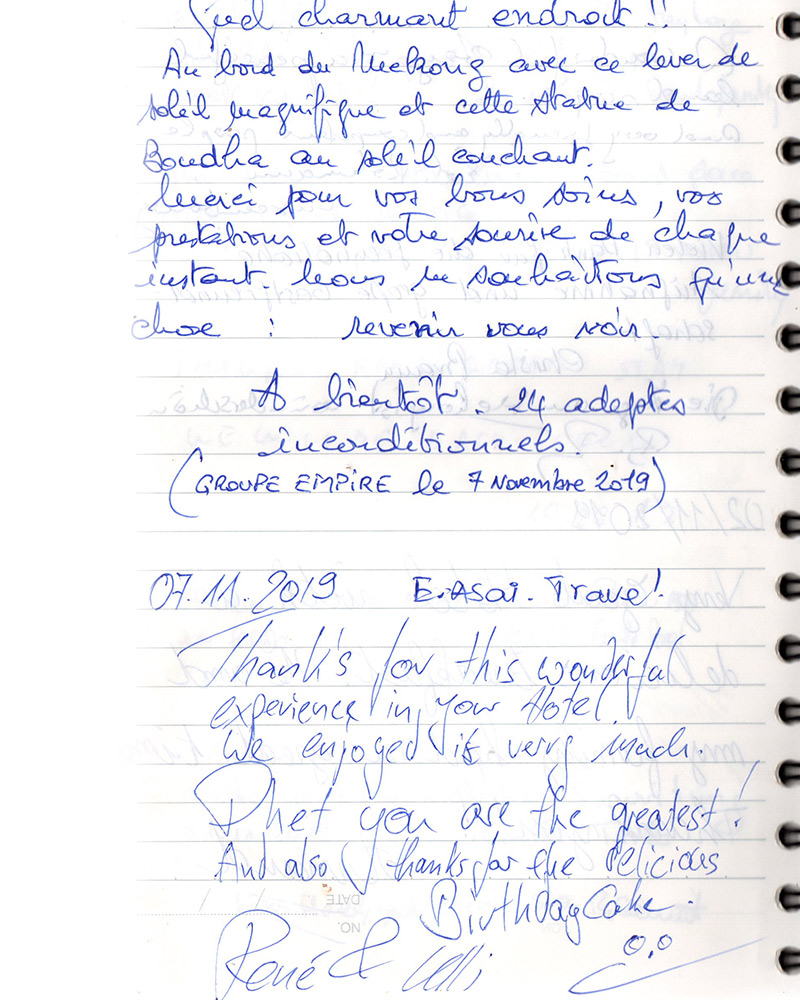 Quel charmant endroit !!
Au bord du Mekong avec ce lever de
soleil magnifique et cette statue de
Boudha au soleil couchant.
Merci pour vos bons soins, vos
prestations et votre sourire de chaque
instant. Nous ne souhaitons qu'une
chose : revenir vous voir.
A bientôt. 24 adeptes
inconditionnels.
(GROUPE EMPIRE le 7 Novembre 2019)
07.11.2019 E.Asai. Travel
Thank's for this wonderful
experience in your Hotel.
We enjoyed it verry much.
Phet you are the greatest!
And also thanks for the delicious
BirthdayCake.
DATE
NO.
René &